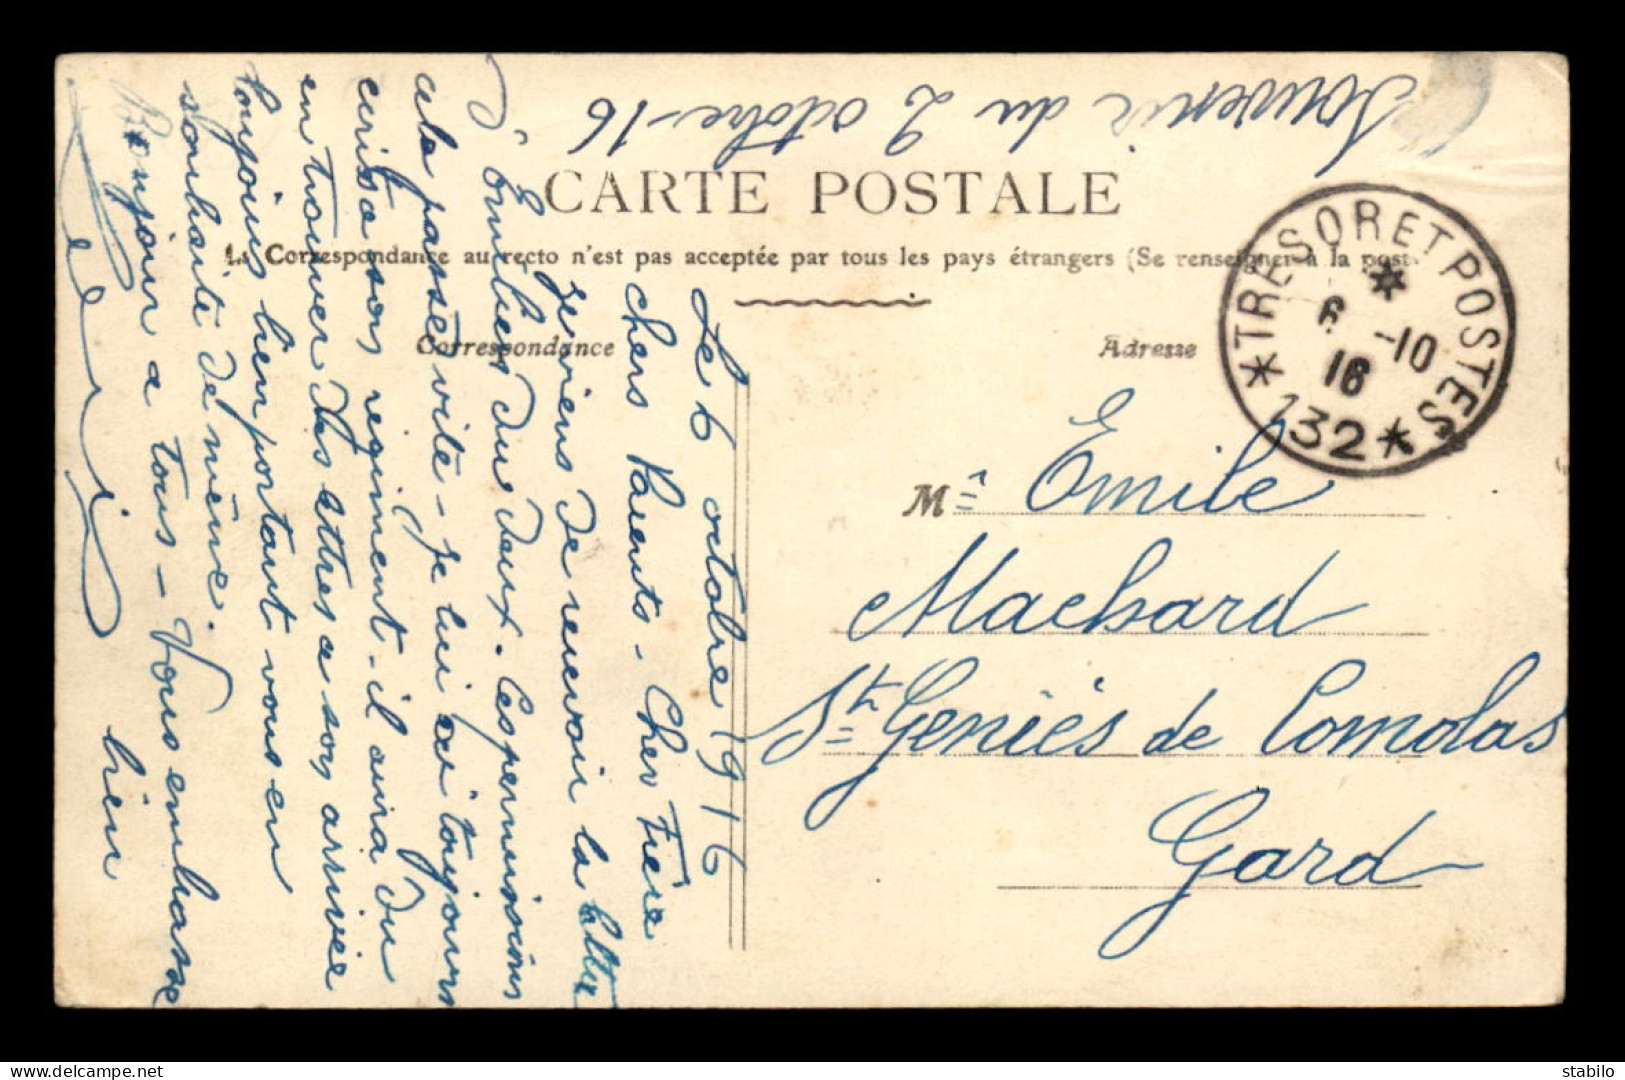 Souvenir du 2 octobre-16
CARTE POSTALE
La Correspondance au recto n'est pas acceptée par tous les pays étrangers (Se renseigner à la post
Correspondance
Adresse
*TRESOR ET POSTES*
*
6 -10
16
132
Mr Emile
Machard
St Geniès de Comolas
Gard
Le 6 octobre 1916
chers Parents - Cher Frère
Je viens de recevoir la lettre
d'Emilien du deux. Ces permissions
cela passe vite - je lui ai toujours
écris a son regiment - il aura du
en trouver des lettres a son arrivée
toujours bien portant vous en
souhaite de même.
Bonjour a tous - Vous embrasse
bien
stabilo